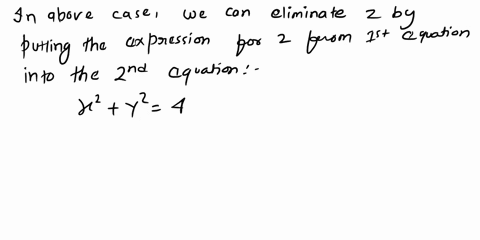 In above case, we can eliminate z by
putting the expression for z from 1st equation
into the 2nd equation:-
x² + y² = 4